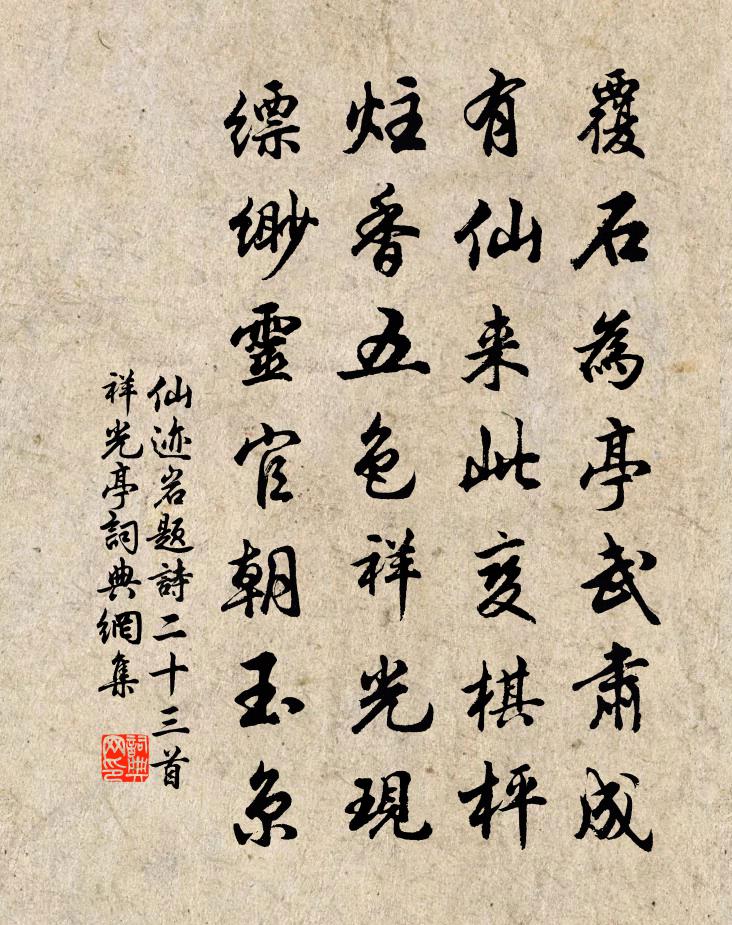 覆石為亭武肅成
有仙来此变棋枰
炷香五色祥光現
縹緲靈官朝玉京
仙迹岩題詩二十三首
祥光亭詞典網集
詞典网印